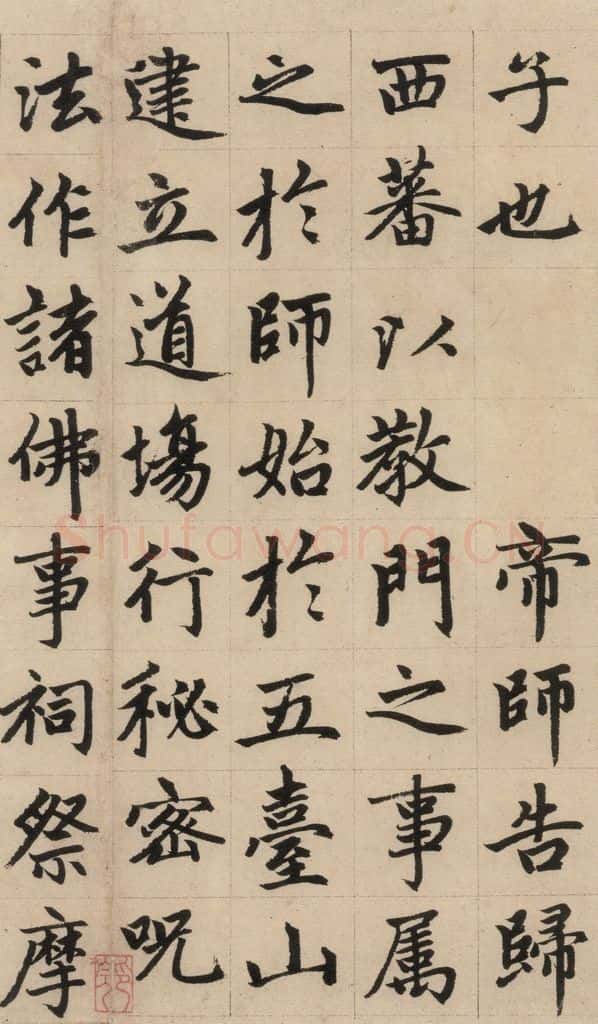 子也　帝師告歸
西蕃以教門之事属
之於師始於五臺山
建立道場行秘密呪
法作諸佛事祠祭摩
Shufawang.CN